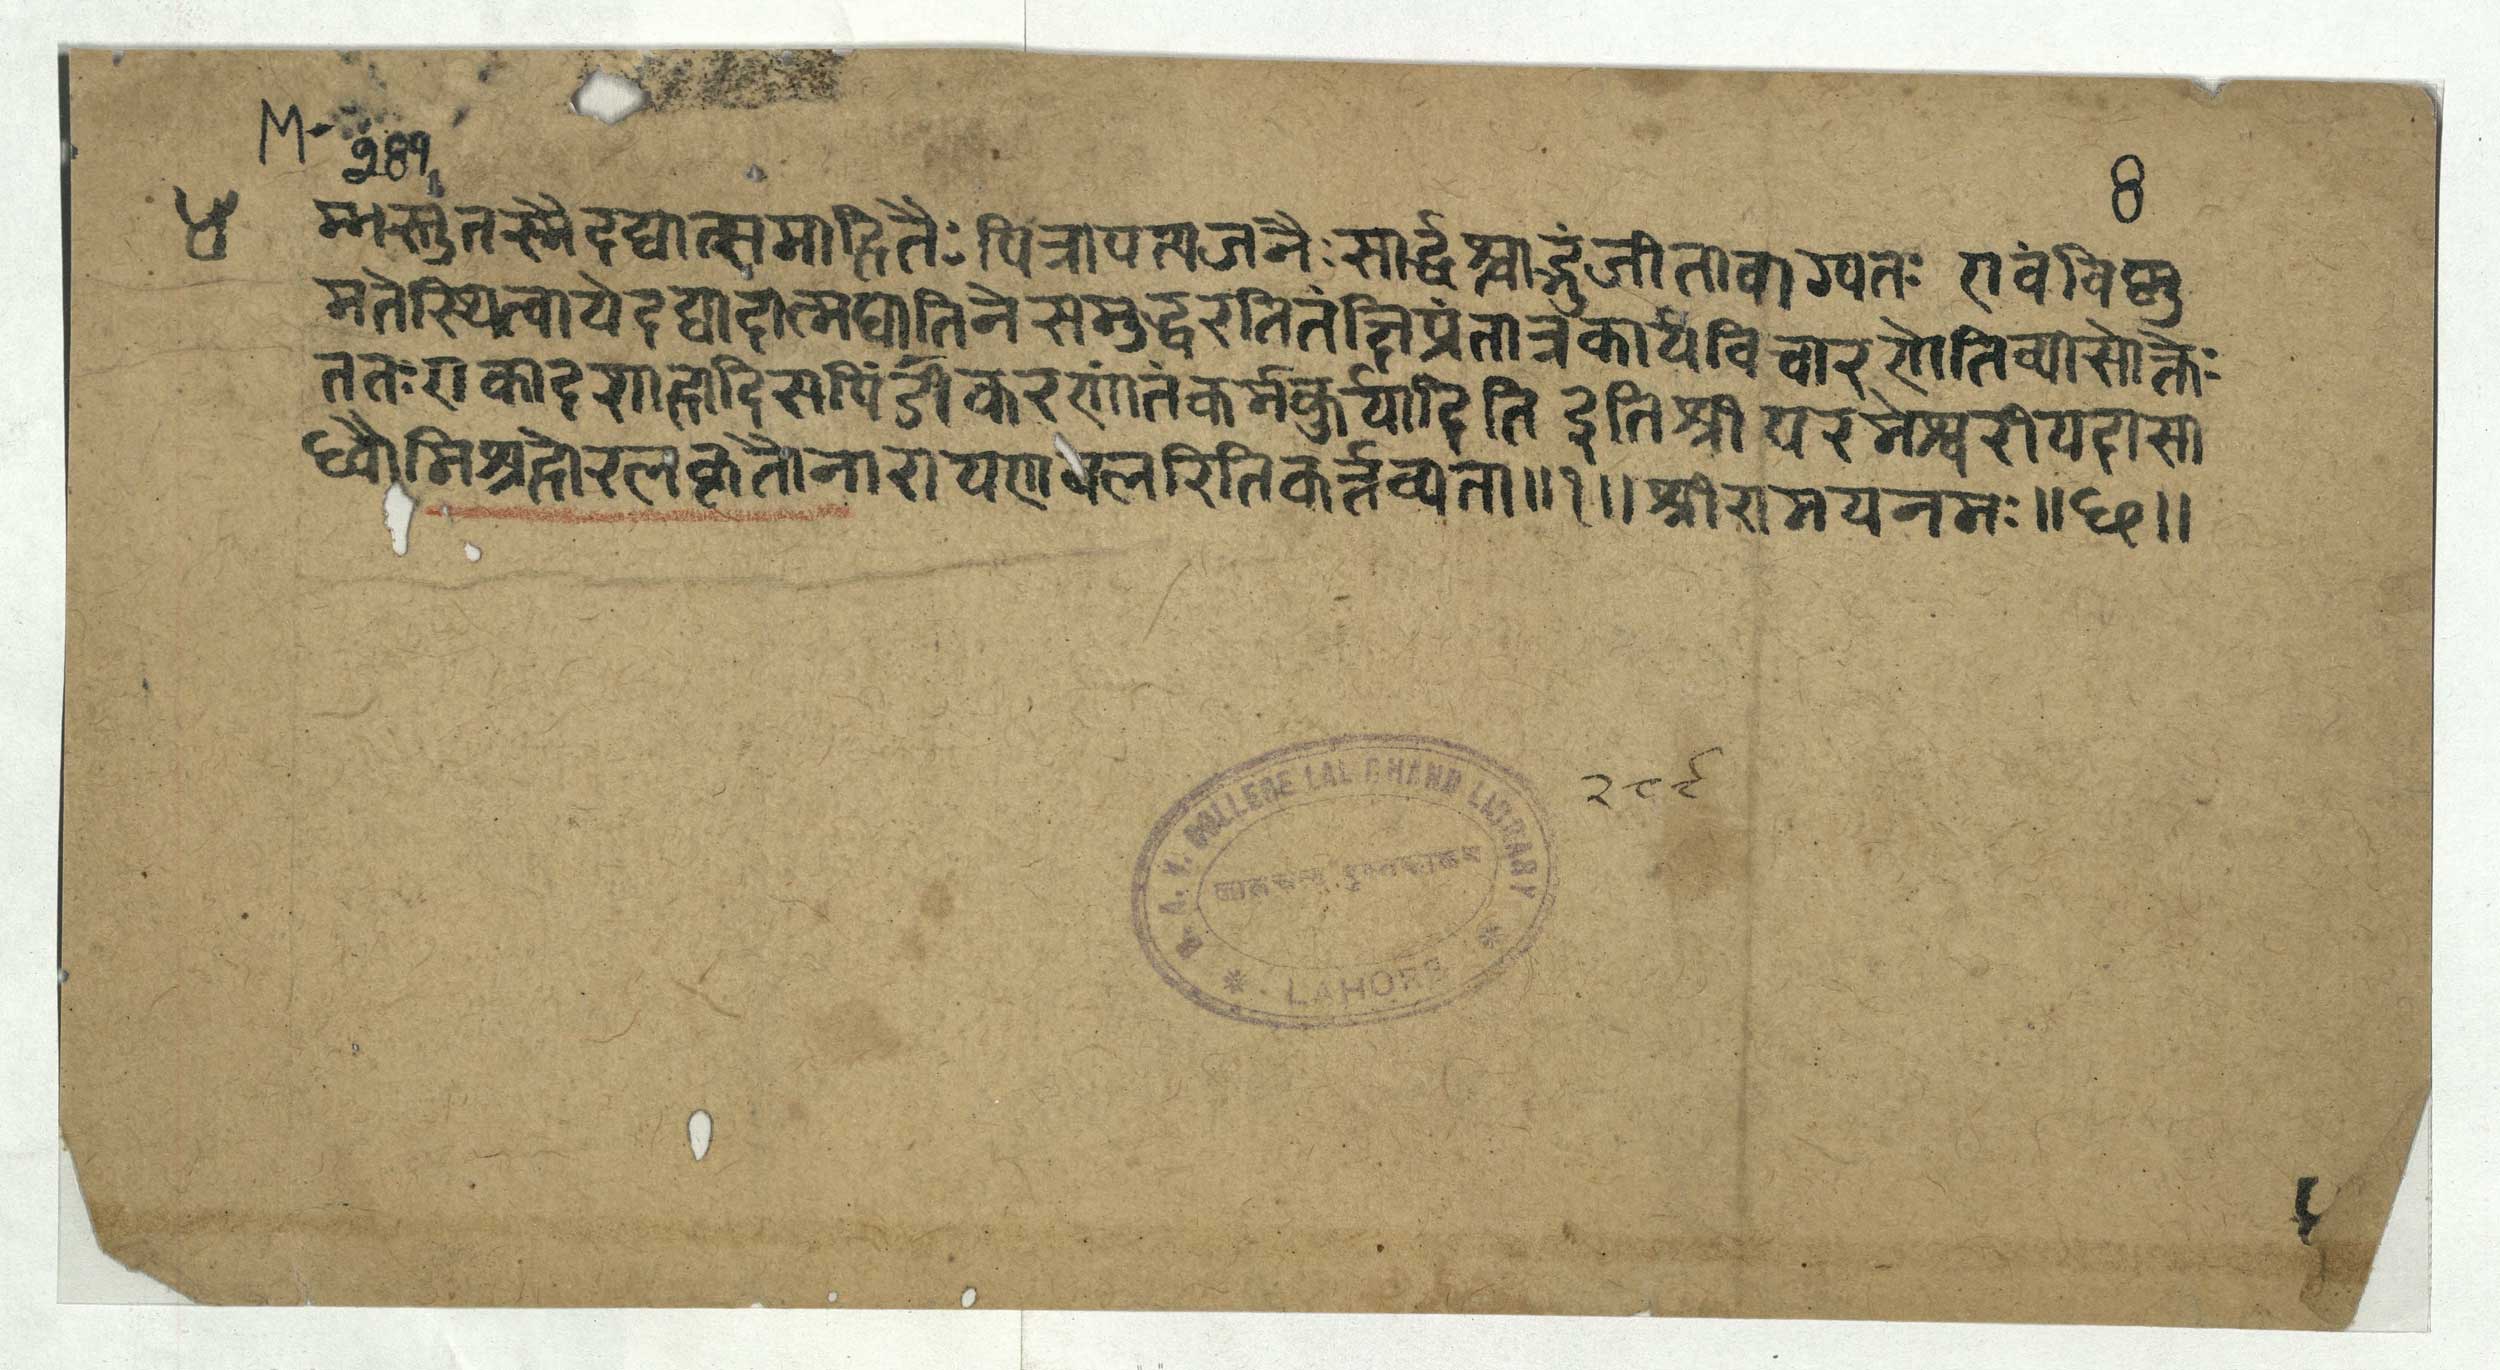 M-289
४
8
म्मस्तु तस्मै दद्यात्समाहितैः पित्रापत्यजनैः सार्द्धं पश्चाद्भुंजीत वाग्यतः एवं विष्णु
मते स्थित्वा ये दद्यादात्मघातिने समुद्धरति तं क्षिप्रं नात्र कार्य विचारणेति व्यासोक्तेः
ततः एकादशाहादि सपिंडीकरणांतं कर्म कुर्यादिति इति श्री परमेश्वरीयदासा
ब्धौ मिश्रहोरलकृतौ नारायणबलरिति कर्त्तव्यता ॥१॥ श्रीरामयनमः ॥छ॥
D. A. V. COLLEGE LAL CHAND LIBRARY
लालचन्द पुस्तकालय
* LAHORE *
२८९